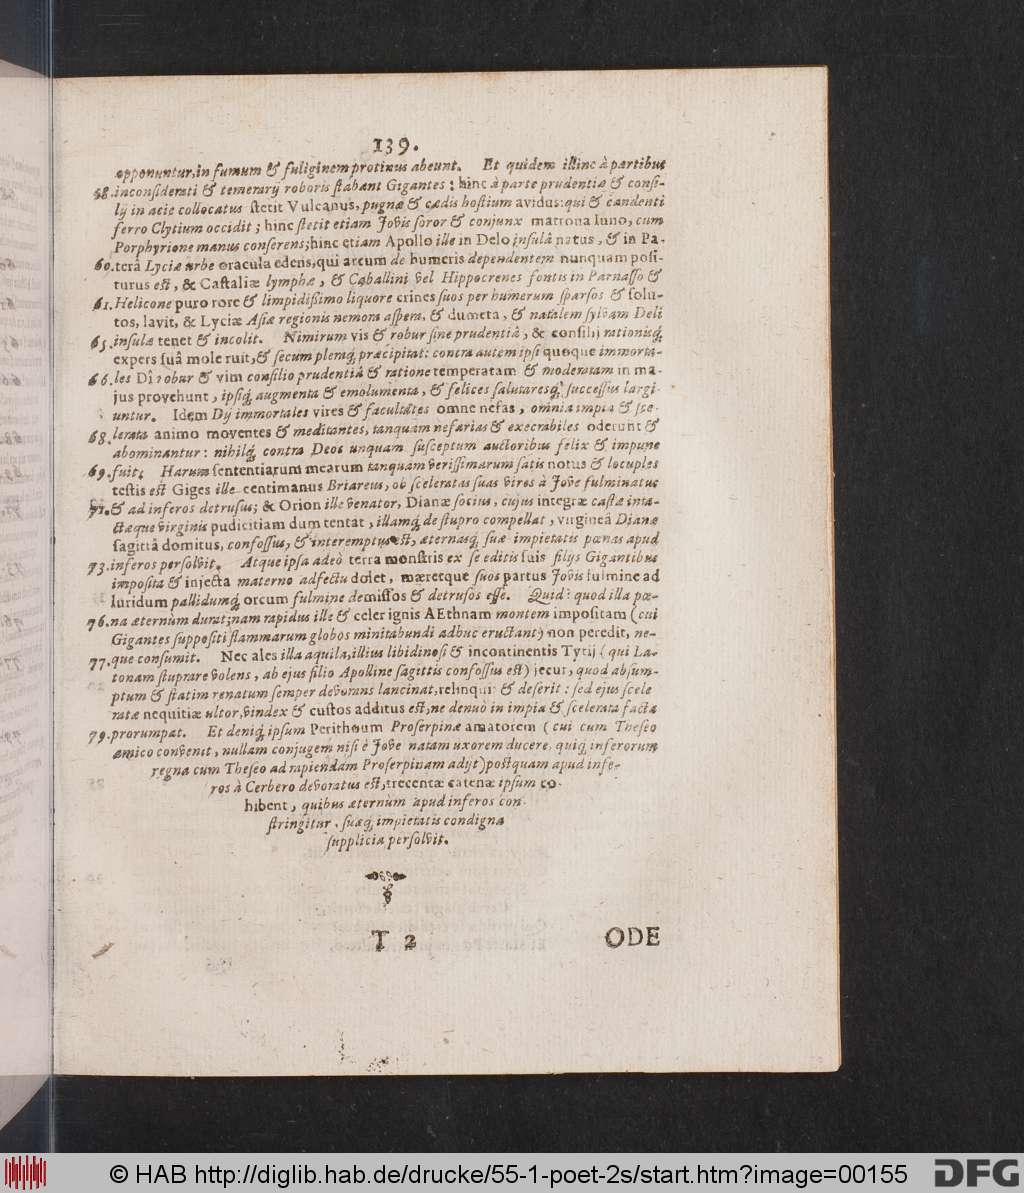 139.
opponuntur, in fumum & fuliginem protinus abeunt. Et quidem illinc à partibus
58. inconsiderati & temerarij roboris stabant Gigantes: hinc à parte prudentiæ & consi-
lij in acie collocatus stetit Vulcanus, pugnæ & cædis hostium avidus: qui & candenti
ferro Clytium occidit; hinc stetit etiam Jovis soror & conjunx matrona Iuno, cum
Porphyrione manus conserens; hinc etiam Apollo ille in Delo insulâ natus, & in Pa-
60. terâ Lyciæ urbe oracula edens, qui arcum de humeris dependentem nunquam posi-
turus est, & Castaliæ lymphæ, & Caballini vel Hippocrenes fontis in Parnasso &
61. Helicone puro rore & limpidißimo liquore crines suos per humerum sparsos & solu-
tos, lavit, & Lyciæ Asiæ regionis nemora aspera, & dumeta, & natalem sylvam Deli
65. insulæ tenet & incolit. Nimirum vis & robur sine prudentiâ, & consilij rationisq;
expers suâ mole ruit, & secum plerumq; præcipitat: contra autem ipsi quoque immorta-
66. les Dî robur & vim consilio prudentiâ & ratione temperatam & moderatam in ma-
jus provehunt, ipsiq; augmenta & emolumenta, & felices salutaresq; successus largi-
untur. Idem Dij immortales vires & facultates omne nefas, omnia impia & sce-
68. lerata animo moventes & meditantes, tanquam nefarias & execrabiles oderunt &
abominantur: nihilq; contra Deos unquam susceptum auctoribus felix & impune
69. fuit; Harum sententiarum mearum tanquam verissimarum satis notus & locuples
testis est Giges ille centimanus Briareus, ob sceleratas suas vires à Jove fulminatus
71. & ad inferos detrusus; & Orion ille venator, Dianæ socius, cujus integræ castæ inta-
ctæque virginis pudicitiam dum tentat, illamq; de stupro compellat, virgineâ Dianæ
sagittâ domitus, confossus, & interemptus est, æternasq; suæ impietatis pœnas apud
73. inferos persolvit. Atque ipsa adeò terra monstris ex se editis suis filijs Gigantibus
imposita & injecta materno adfectu dolet, mæretque suos partus Jovis fulmine ad
luridum pallidumq; orcum fulmine demissos & detrusos esse. Quid? quod illa pœ-
76. na æternum durat; nam rapidus ille & celer ignis AEthnam montem impositam (cui
Gigantes suppositi flammarum globos minitabundi adhuc eructant) non peredit, ne-
77. que consumit. Nec ales illa aquila, illius libidinosi & incontinentis Tytij (qui La-
tonam stuprare volens, ab ejus filio Apolline sagittis confossus est) jecur, quod absum-
ptum & statim renatum semper devorans lancinat, relinquit & deserit: sed ejus scele
ratæ nequitiæ ultor, vindex & custos additus est, ne denuò in impia & scelerata facta
79. prorumpat. Et deniq; ipsum Perithoum Proserpinæ amatorem (cui cum Theseo
amico convenit, nullam conjugem nisi è Jove natam uxorem ducere, quiq; inferorum
regna cum Theseo ad rapiendam Proserpinam adijt) postquam apud infe-
ros à Cerbero devoratus est, trecentæ catenæ ipsum co-
hibent, quibus æternùm apud inferos con-
stringitur, suæq; impietatis condigna
supplicia persolvit.
T 2
ODE
© HAB http://diglib.hab.de/drucke/55-1-poet-2s/start.htm?image=00155
DFG